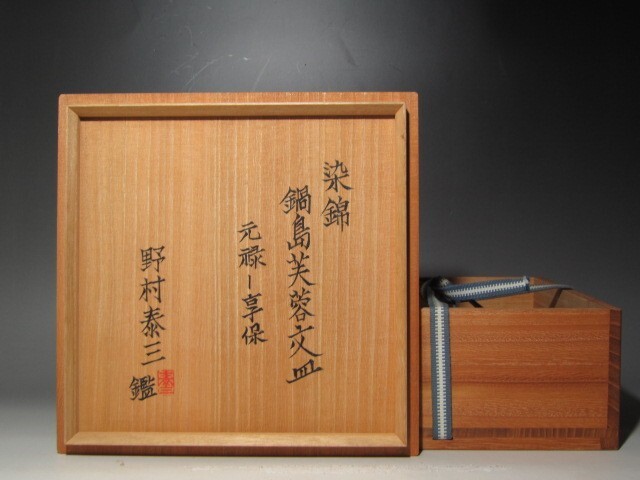 染錦
鍋島芙蓉文皿
元禄ー享保
野村泰三鑑